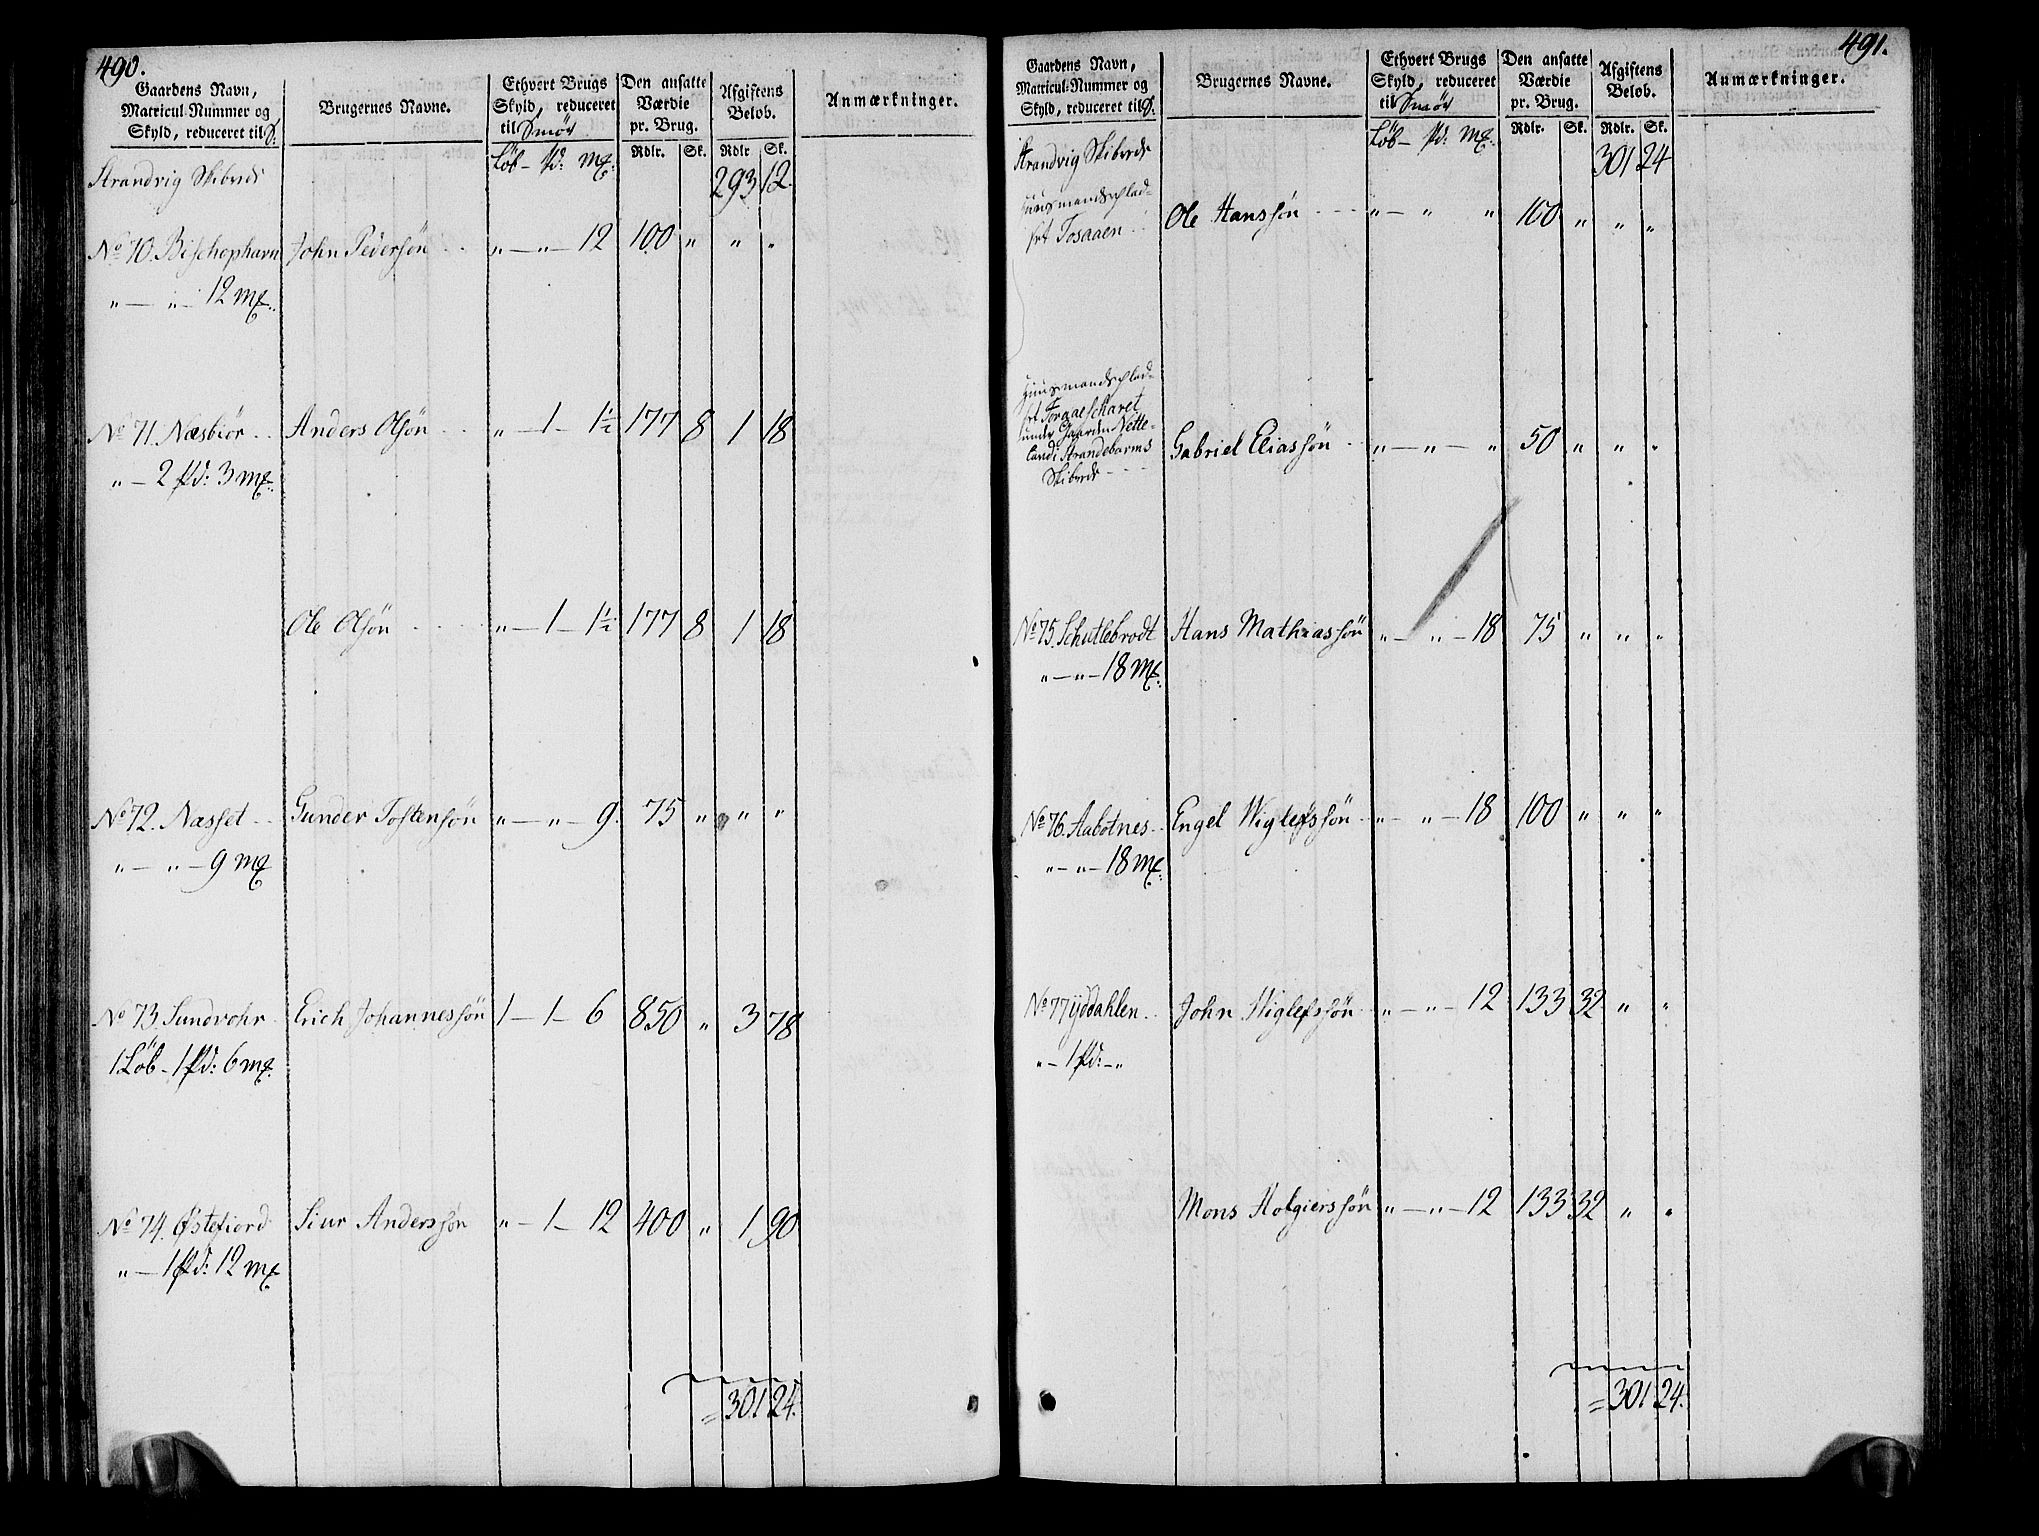 490.
Gaardens Navn, Matricul-Nummer og Skyld, reduceret til S:
Brugernes Navne.
Ethvert Brugs Skyld, reduceret til Smör
Den ansatte Værdie pr. Brug.
Afgiftens Belob.
Anmærkninger.
Löb – Pd: Mk: Rdlr. Sk. Rdlr Sk.
Strandvig Skibrede 293 12.
No 70. Bischophavn John Pedersön " — " — 12 100 " " "
" — " — 12 mk.
No 71. Næsbiör Anders Olsön " — 1 — 1½ 177 8 1 18
" — 2 Pd: 3 mk.
Ole Olsön " — 1 — 1½ 177 8 1 18
No 72. Næsset Gunder Tostensön " — " — 9. 75 " " "
" — " — 9 mk
No 73. Sundvohr Erich Johannessön 1 — 1 — 6 850 " 3 78
1 Löb – 1 Pd: 6 mk.
No 74. Østefiord Siur Anderssön " — 1 — 12 400 " 1 90
" — 1 Pd: 12 mk
= 301 24.
491.
Gaardens Navn, Matricul-Nummer og Skyld, reduceret til S:
Brugernes Navne.
Ethvert Brugs Skyld, reduceret til Smör
Den ansatte Værdie pr. Brug.
Afgiftens Belob.
Anmærkninger.
Löb – Pd: Mk: Rdlr. Sk. Rdlr. Sk.
Strandvig Skibrede 301 24
Huusmandsplad-
set Tosaaen Ole Hanssön " — " " 100 " " "
Huusmandsplad-
set
under Gaarden Nette-
land i Strandebarms Gabriel Eliassön " — " — " 50 " " "
Skibrede
No 75. Schutlebrodt Hans Mathiassön " — " — 18 75 " " "
" — " — 18 Mk.
No 76. Aabotnes Engel Wiglefssön " — " — 18 100 " " "
" — " — 18 Mk.
No 77 Yddahlen John Wiglefssön " — " — 12 133 32 " "
" — 1 Pd: — "
Mons Holgierssön " — " — 12 133 32 " "
= 301 24.